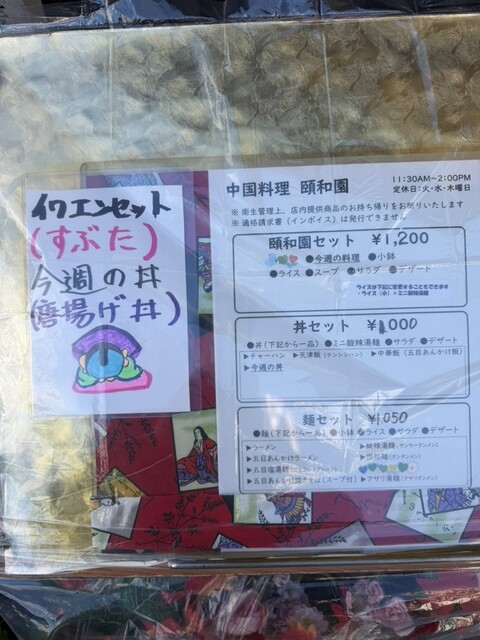 イワエンセット
(すぶた)
今週の丼
(唐揚げ丼)
中国料理 頤和園
11:30AM~2:00PM
定休日:火・水・木曜日
※ 衛生管理上、店内提供商品のお持ち帰りをお断りいたします
※ 適格請求書(インボイス)は発行できません
頤和園セット ¥1,200
●今週の料理 ●小鉢
●ライス ●スープ ●サラダ ●デザート
ライスは下記に変更することもできます
・ライス(小)+ミニ酸辣湯麺
丼セット ¥1,000
●丼(下記から一品) ●ミニ酸辣湯麺 ●サラダ ●デザート
▶チャーハン ▶天津飯(テンシンハン) ▶中華飯(五目あんかけ飯)
▶今週の丼
麺セット ¥1,050
●麺(下記から一品) ●小鉢 ●ライス ●サラダ ●デザート
▶ラーメン ▶酸辣湯麺(サンラータンメン)
▶五目あんかけラーメン ▶担担麺(タンタンメン)
▶五目塩湯麺
▶五目あんかけ焼きそば(スープ付) ▶アサリ湯麺(アサリタンメン)